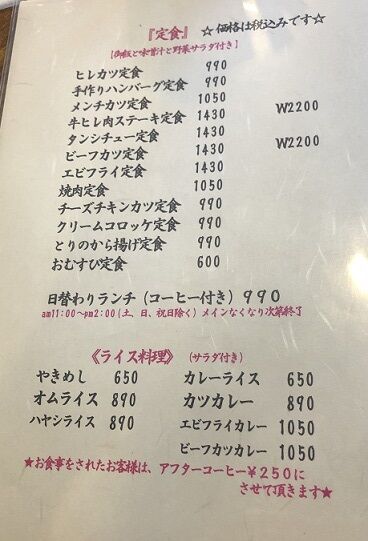 『定食』 ☆価格は税込みです☆
【御飯と味噌汁と野菜サラダ付き】
ヒレカツ定食 990
手作りハンバーグ定食 990
メンチカツ定食 1050
牛ヒレ肉ステーキ定食 1430 W2200
タンシチュー定食 1430
ビーフカツ定食 1430 W2200
エビフライ定食 1430
焼肉定食 1050
チーズチキンカツ定食 990
クリームコロッケ定食 990
とりのから揚げ定食 990
おむすび定食 600
日替わりランチ（コーヒー付き）990
am11:00～pm2:00(土、日、祝日除く)メインなくなり次第終了
《ライス料理》（サラダ付き）
やきめし 650 カレーライス 650
オムライス 890 カツカレー 890
ハヤシライス 890 エビフライカレー 1050
ビーフカツカレー 1050
★お食事をされたお客様は、アフターコーヒー¥250に
させて頂きます★